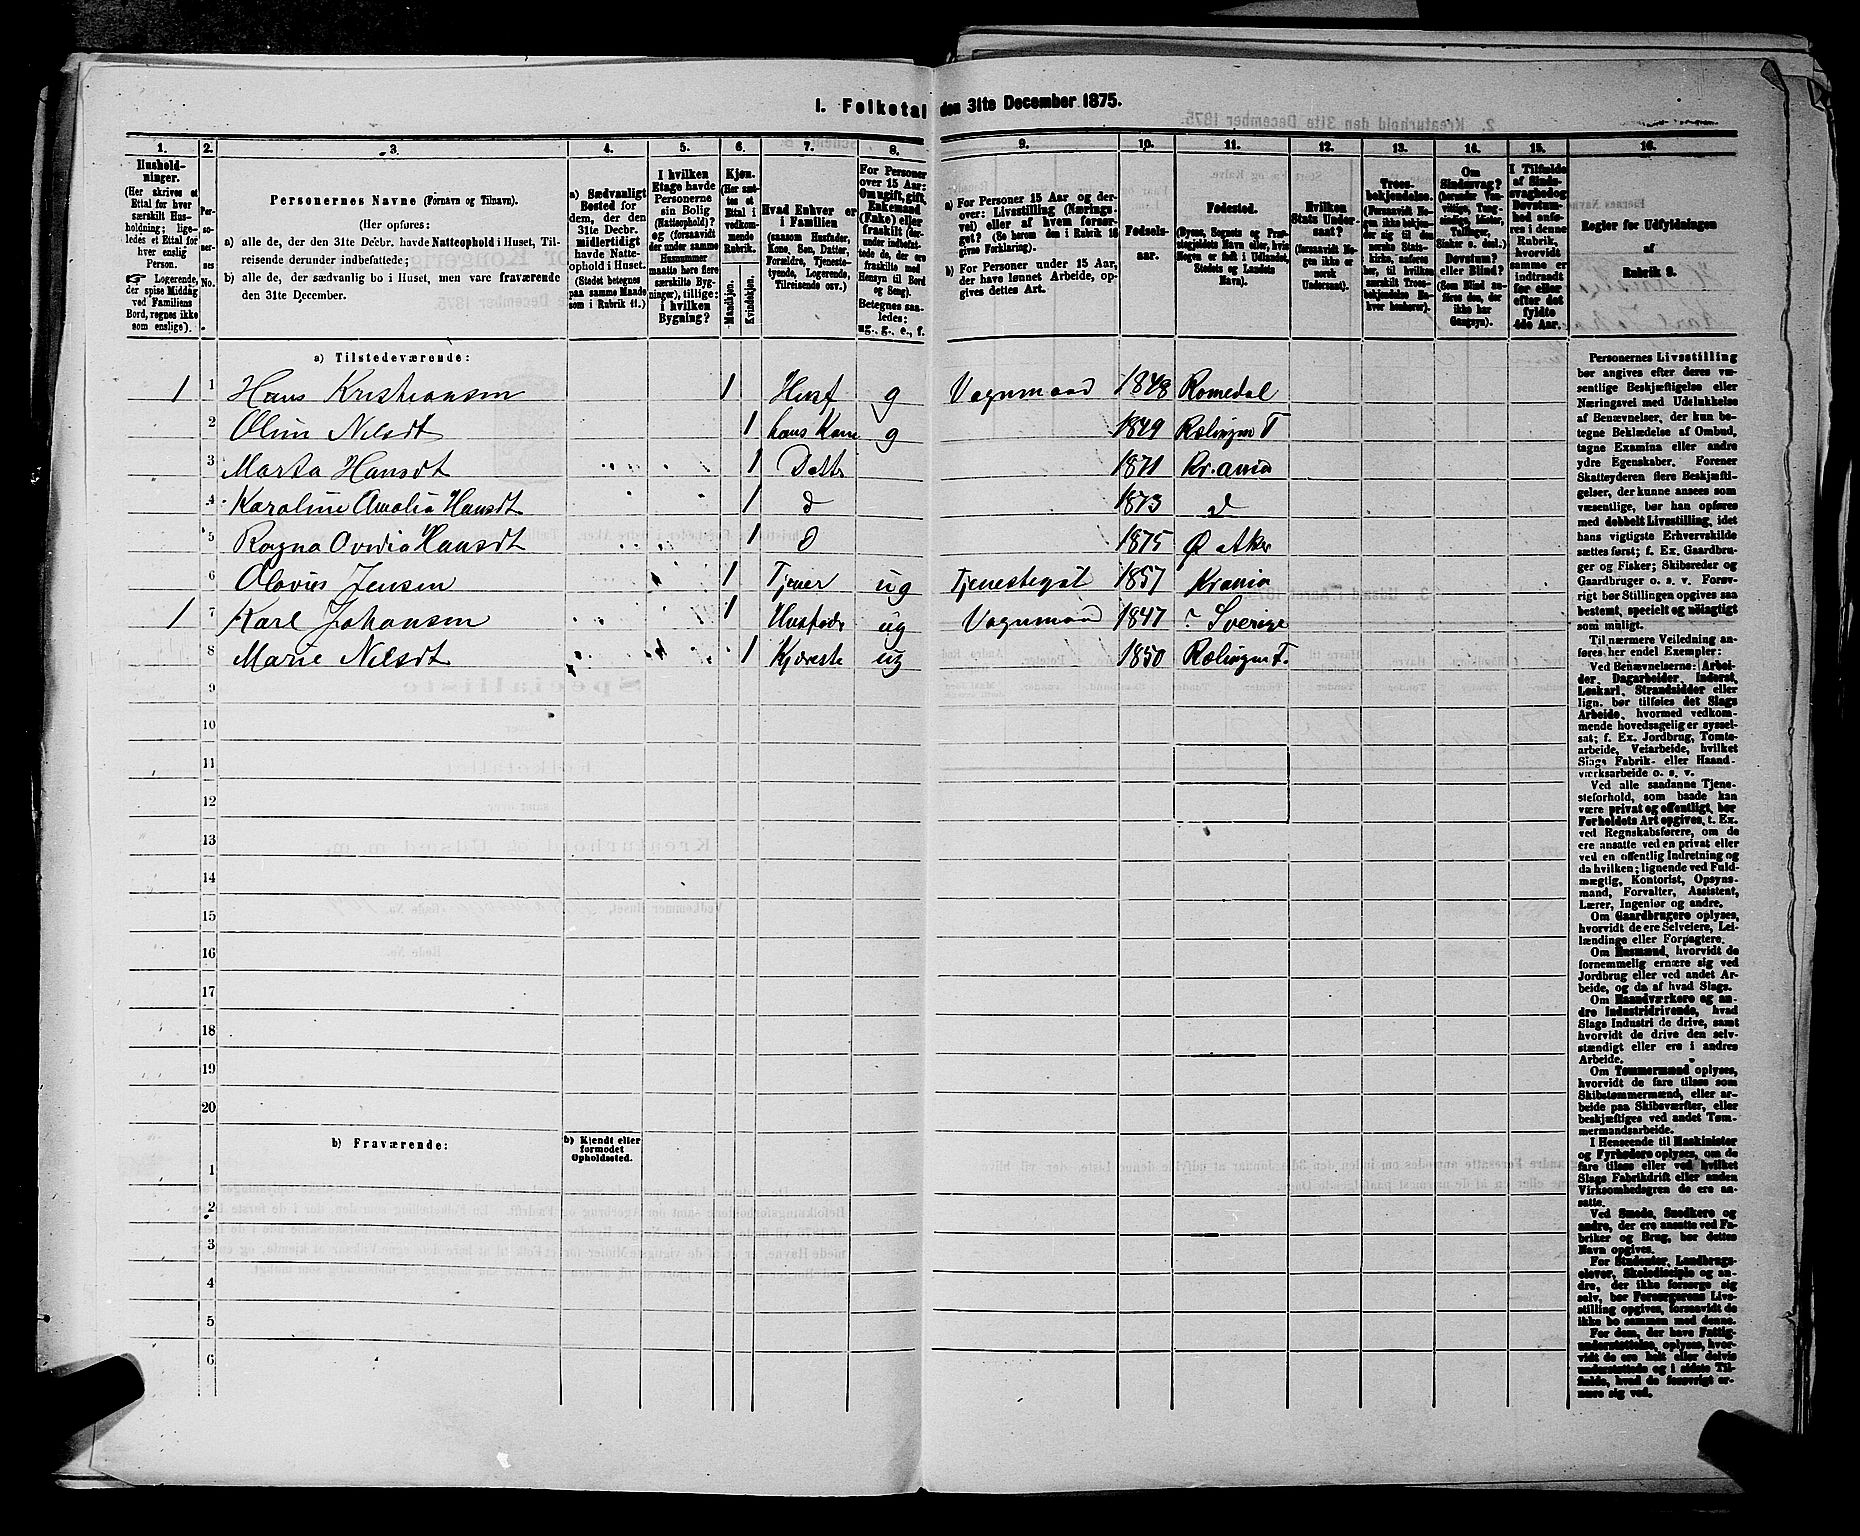 I. Folketal den 31te December 1875.
1. 2. 3. 4. 5. 6. 7. 8. 9. 10. 11. 12. 13. 14. 15. 16.
Husholdninger.
(Her skrives et Ettal for hver særskilt Husholdning; ligeledes et Ettal for hver enslig Person.
☞ Logerende, der spise Middag ved Familiens Bord, regnes ikke som enslige).
Personernes No.
Personernes Navne (Fornavn og Tilnavn).
(Her opføres:
a) alle de, der den 31te Decbr. havde Natteophold i Huset, Tilreisende derunder indbefattede;
b) alle de, der sædvanlig bo i Huset, men vare fraværende den 31te December.
a) Sædvanligt Bosted for dem, der den 31te Decbr. midlertidigt havde Natteophold i Huset. (Stedet betegnes paa samme Maade som i Rubrik 11.)
I hvilken Etage havde Personerne sin Bolig (Natteophold)? og (forsaavidt der under samme Husnummer maatte høre flere særskilte Bygninger), tillige: i hvilken Bygning?
Kjøn. (Her sættes et Ettal i vedkommende Rubrik.
Mandkjøn. Kvindekjøn.
Hvad Enhver er i Familien (saasom Husfader, Kone, Søn, Datter, Forældre, Tjenestetyende, Logerende, Tilreisende osv.)
For Personer over 15 Aar: Om ugift, gift, Enkemand (Enke) eller fraskilt (derunder indbefattede de, der ere fraskilte med Hensyn til Bord og Seng). Betegnes saaledes: ug., g., e., f.
a) For Personer 15 Aar og derover: Livsstilling (Næringsvei) eller af hvem forsørget? (Se herom den i Rubrik 16 givne Forklaring).
b) For Personer under 15 Aar, der have lønnet Arbeide, opgives dettes Art.
Fødselsaar.
Fødested. (Byens, Sognets og Præstegjeldets Navn eller, hvis Nogen er født i Udlandet, Stedets og Landets Navn).
Hvilken Stats Undersaat? (forsaavidt Nogen ikke er norsk Undersaat).
Troesbekjendelse. (Forsaavidt Nogen ikke bekjender sig til den norske Statskirke, anføres her, til hvilken særskilt Troesbekjendelse Enhver henhører).
Om Sindssvag? (herunder Vanvittige, Tungsindige, Idioter, Tullinger, Sinker o. desl.) Døvstum? eller Blind? (Som Blind anføres den, der ikke har Gangsyn).
I Tilfælde af Sindssvaghed og Døvstumhed anføres i denne Rubrik, hvorvidt samme er indtraadt før eller efter det fyldte 4de Aar.
Regler for Udfyldningen af Rubrik 9.
a) Tilstedeværende:
1 1 Hans Kristiansen 1 Husf g Vognmand 1848 Romedal
2 Oline Nilsdt 1 hans Kone g 1849 Rælingen F
3 Marta Hansdt 1 Datt 1871 Kr.ania
4 Karoline Amalia Hansdt 1 d 1873 d
5 Ragna Ovidia Hansdt 1 d 1875 Ø Aker
6 Olavus Jensen 1 Tjener ug Tjenestegut 1857 Krania
1 7 Karl Johansen 1 Husfadr ug Vognmand 1847 ? Sverige
8 Marie Nilsdt 1 Kjæreste ug 1850 Rælingen F.
9
10
11
12
13
14
15
16
17
18
19
20
b) Fraværende:
b) Kjendt eller formodet Opholdssted.
1
2
3
4
5
6
Personernes Livsstilling
bør angives efter deres væ-
sentlige Beskjæftigelse eller
Næringsvei med Udelukkelse
af Benævnelser, der kun be-
tegne Beklædelse af Ombud,
tagne Examina eller andre
ydre Egenskaber. Forener
Skatteyderen flere Beskjæfti-
gelser, der kunne ansees som
væsentlige, bør han opføres
med dobbelt Livsstilling, idet
hans vigtigste Erhvervskilde
sættes først; f. Ex. Gaardbru-
ger og Fisker; Skibsreder og
Gaardbruger o. s. v. Forøv-
rigt bør Stillingen opgives saa
bestemt, specielt og nøiagtigt
som muligt.
Til nærmere Veiledning an-
føres her endel Exempler:
Ved Benævnelserne: Arbei-
der, Dagarbeider, Inderst,
Løskarl, Strandsidder eller
lign. bør tilføies det Slags
Arbeide, hvormed vedkom-
mende hovedsagelig er syssel-
sat; f. Ex. Jordbrug, Tomte-
arbeide, Veiarbeide, hvilket
Slags Fabrik- eller Haand-
værksarbeide o. s. v.
Ved alle saadanne Tjene-
steforhold, som baade kan
være privat og offentligt, bør
Forholdets Art opgives, t. Ex.
ved Regnskabsførere, om de
ere ansatte ved en privat eller
ved en offentlig Indretning og
da hvilken; lignende ved Fuld-
mægtig, Kontorist, Opsyns-
mand, Forvalter, Assistent,
Lærer, Ingeniør og andre.
Om Gaardbrugere oplyses,
hvorvidt de ere Selveiere, Lei-
lændinge eller Forpagtere.
Om Husmænd, hvorvidt de
fornemmelig ernære sig ved
Jordbrug eller ved andet Ar-
beide, og da af hvad Slags.
Om Haandværkere og an-
dre Industridrivende, hvad
Slags Industri de drive, samt
hvorvidt de drive den selv-
stændigt eller ere i andres
Arbeide.
Om Tømmermænd oplyses,
hvorvidt de fare tilsøs som
Skibstømmermænd, eller ar-
beide paa Skibsværfter, eller
beskjæftiges ved andet Tøm-
mermandsarbeide.
I Henseende til Maskinister
og Fyrbødere oplyses, om de
fare tilsøs eller ved hvilket
Slags Fabrikdrift eller anden
Virksomhedsgren de ere an-
satte.
Ved Smede, Snedkere og
andre, der ere ansatte ved Fa-
briker og Brug, bør dettes
Navn opgives.
For Studenter, Landbrugs-
elever, Skoledisciple og an-
dre, der ikke forsørge sig
selv, bør Forsørgerens Livs-
stilling opgives, forsaavidt de
ikke bo sammen med denne.
For dem, der have Fattig-
understøttelse, oplyses, hvor-
vidt de ere helt eller delvis
understøttede og i sidste Til-
fælde, hvad de forøvrigt er-
nære sig ved.